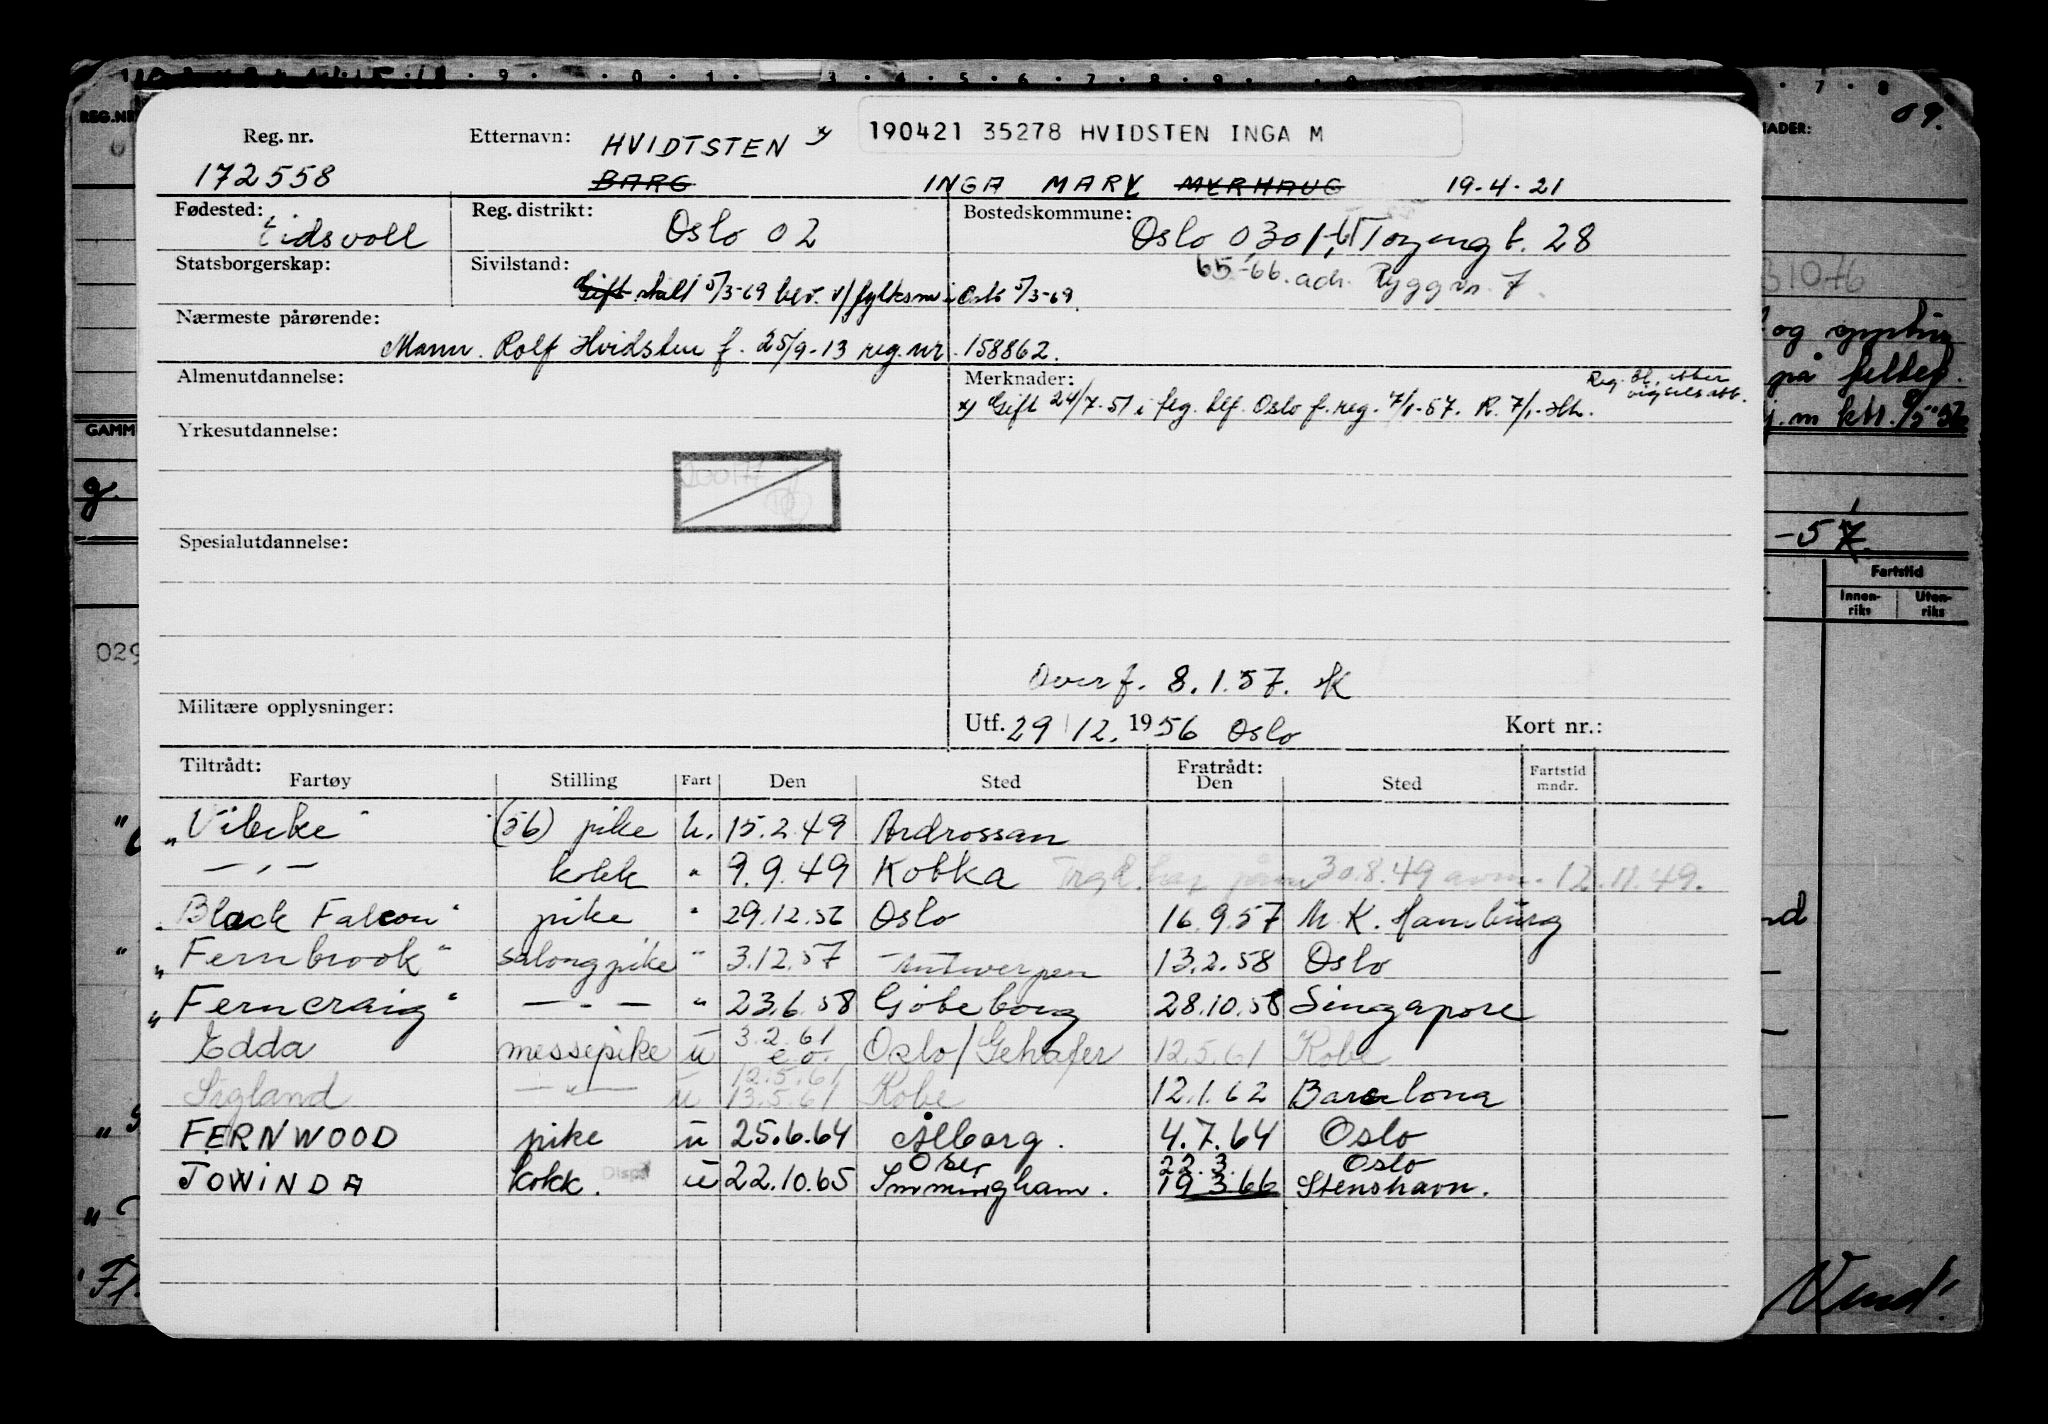 REG.NR
Reg. nr. Etternavn: HVIDTSTEN x) 190421 35278 HVIDSTEN INGA M
172558 BARG INGA MARY MYRHAUG 19-4-21
Fødested: Eidsvoll Reg. distrikt: Oslo 02 Bostedskommune: Oslo 0301 Tøyengt. 28
65-66. adr. Ryggvn. 7
Statsborgerskap: Sivilstand: Gift skilt 5/3-69 bev. v/ fylksm i Oslo 5/3-69.
Nærmeste pårørende:
Mann. Rolf Hvidsten f. 25/9-13 reg. nr. 158862.
Almenutdannelse: Merknader: Reg. Bl. etter vigselsatt.
x) Gift 24/7-51 i flg. blf. Oslo f. reg. 7/1-57. R. 7/1-
Yrkesutdannelse:
Spesialutdannelse:
Overf. 8.1.57. K
Militære opplysninger: Utf. 29/12. 1956 Oslo Kort nr.:
Tiltrådt: Fratrådt:
Fartøy Stilling Fart Den Sted Den Sted Fartstid mndr.
"Vibeke" (56) pike u. 15.2.49 Ardrossan
— " — kokk " 9.9.49 Kobka 30.8.49 avm. 12.11.49.
"Black Falcon" pike " 29.12.56 Oslo 16.9.57 M.K. Hamburg
"Fernbrook" salongpike " 3.12.57 Antwerpen 13.2.58 Oslo
"Ferncraig" — " — " 23.6.58 Göteborg 28.10.58 Singapore
Edda messepike u 3.2.61 Oslo/Gehafer 12.5.61 Kobe
12.5.61
Sigland — " — u 13.5.61 Kobe 12.1.62 Barcelona
FERNWOOD pike u 25.6.64 Ålborg. 4.7.64 Oslo
22.3. Oslo
TOWINDA kokk. u 22.10.65 Immingham. 19.3.66 Stenshavn.
NADER:
09.
31076
og
på
GAMM
g.
-57.
Fartstid
Innen-riks Uten-riks
029
Vend!